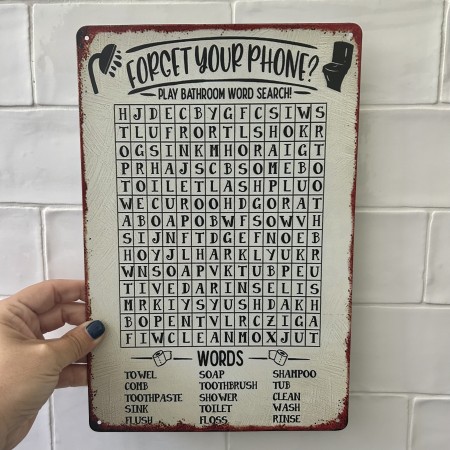 FORGET YOUR PHONE?
PLAY BATHROOM WORD SEARCH!
H J D E C B Y G F C S I W S
T L U F R O R T L S H O K R
O G S I N K M H O R A I G T
P R H A J S C B S O M E B O
T O I L E T L A S H P L U O
W E C U R O O H D G O R A T
A B O A P O B W F S O W V H
S I J N F T D G E F N O E B
H O Y J L H A R K L Y U K R
W N S O A P V K T U B P E U
T I V E D A R I N S E L I S
M R K T Y S Y U S H D A K H
B O P E N T V L R C Z I G A
F I W C L E A N M O X J U T
WORDS
TOWEL SOAP SHAMPOO
COMB TOOTHBRUSH TUB
TOOTHPASTE SHOWER CLEAN
SINK TOILET WASH
FLUSH FLOSS RINSE